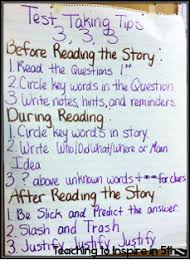 Test Taking Tips
3, 3, 3
Before Reading the Story:
1. Read the Questions 1st
2. Circle key words in the Question
3. Write notes, hints, and reminders.
During Reading:
1. Circle key words in story.
2. Write Who/Did What/Where or Main
Idea
3. ? above unknown words + for clues
After Reading the Story
1. Be Slick and Predict the answer.
2. Slash and Trash
3. Justify Justify Justify
Teaching to Inspire in 5th